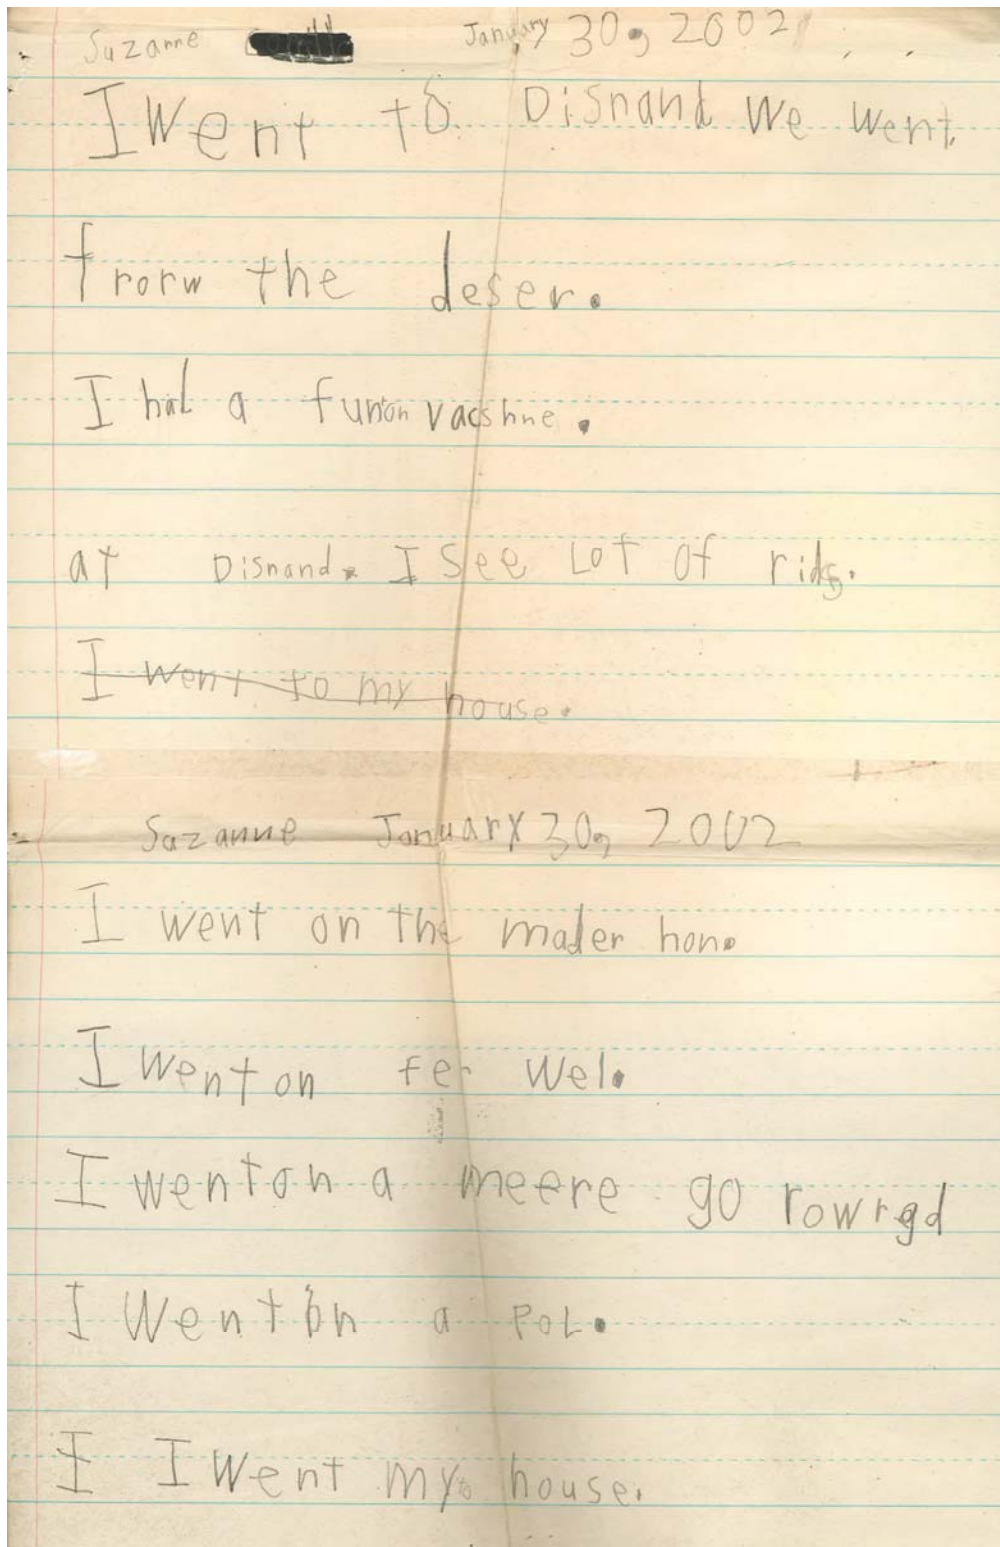 Suzanne January 30, 2002
I Went to Disnand We Went
frorw the deser.
I had a fun on vacshne.
at Disnand. I See Lot of rids.
I went to my house.
Suzanne January 30, 2002
I went on the mader hon.
I Went on fer Wel.
I went on a meere go rowrgd
I Went on a PoL.
I I Went my to house.